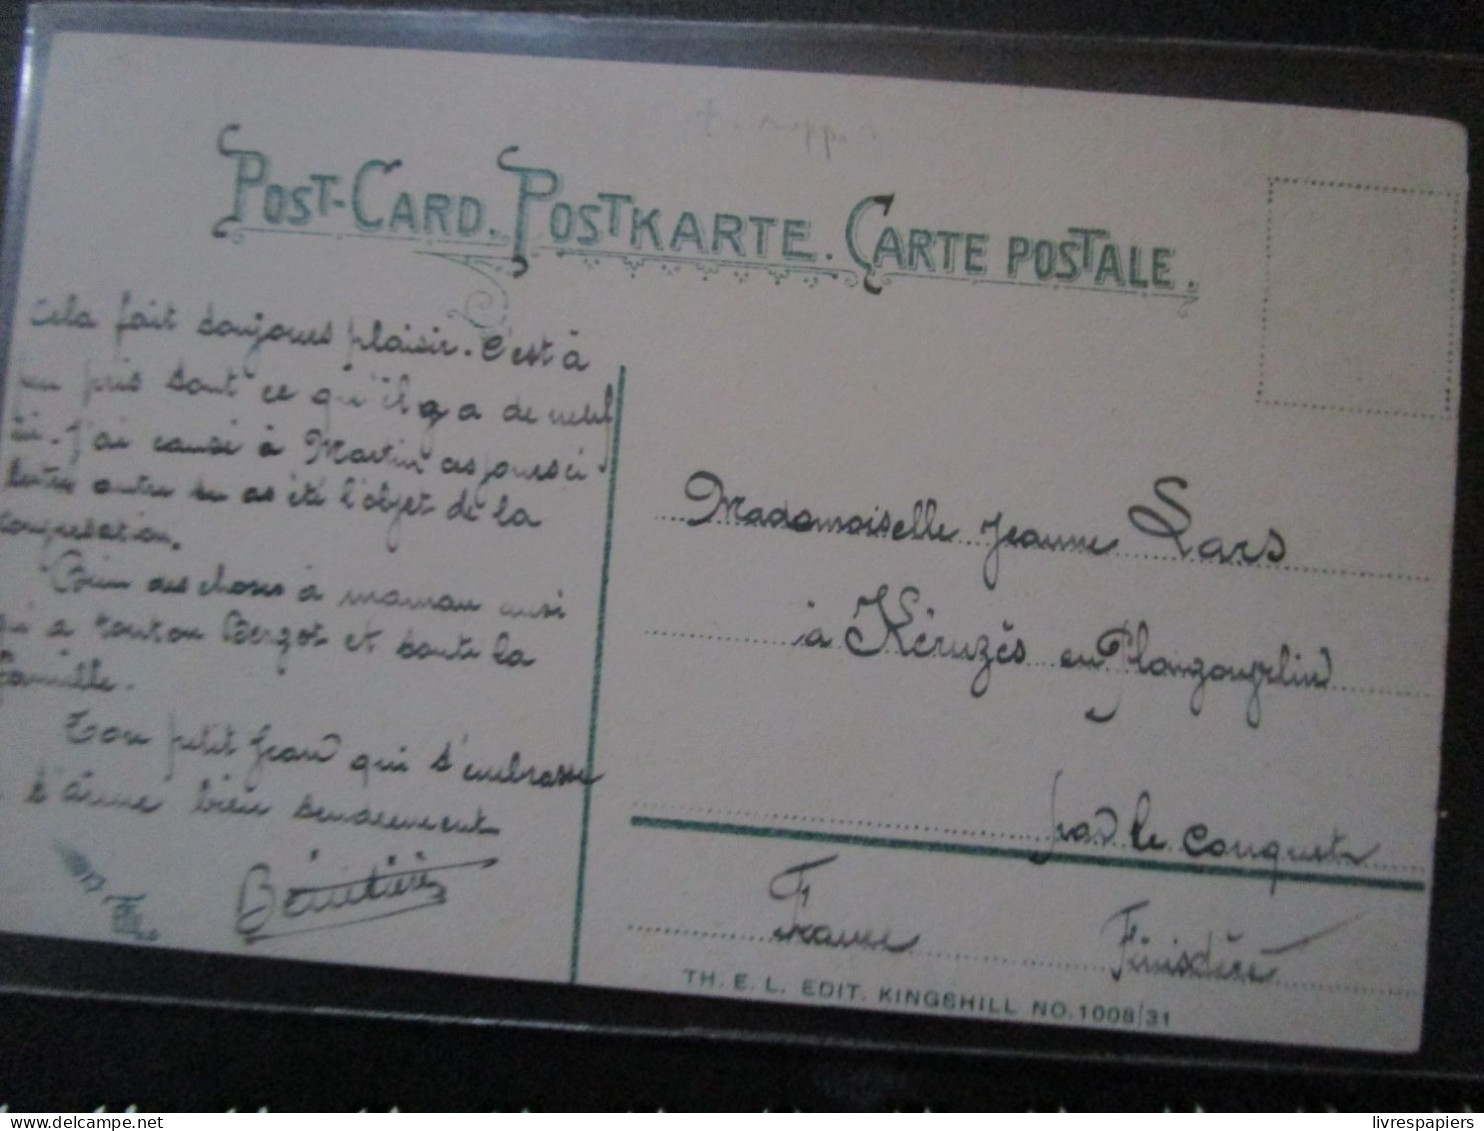 POST-CARD. POSTKARTE. CARTE POSTALE.
Cela fait toujours plaisir. C'est à
peu pris tout ce qu'il y a de neuf
ici. J'ai causé à Martin ces jours ci
entre autre tu as été l'objet de la
conversation.
Bien des choses à maman ainsi
qu'à tonton Bergot et toute la
famille.
Ton petit Jean qui t'embrasse
t'aime bien tendrement
Mademoiselle Jeanne Lars
à Kéruzés en Plougonvelin
par le Conquet
France Finistère
TH. E. L. EDIT. KINGSHILL NO. 1008/31
livrespapiers